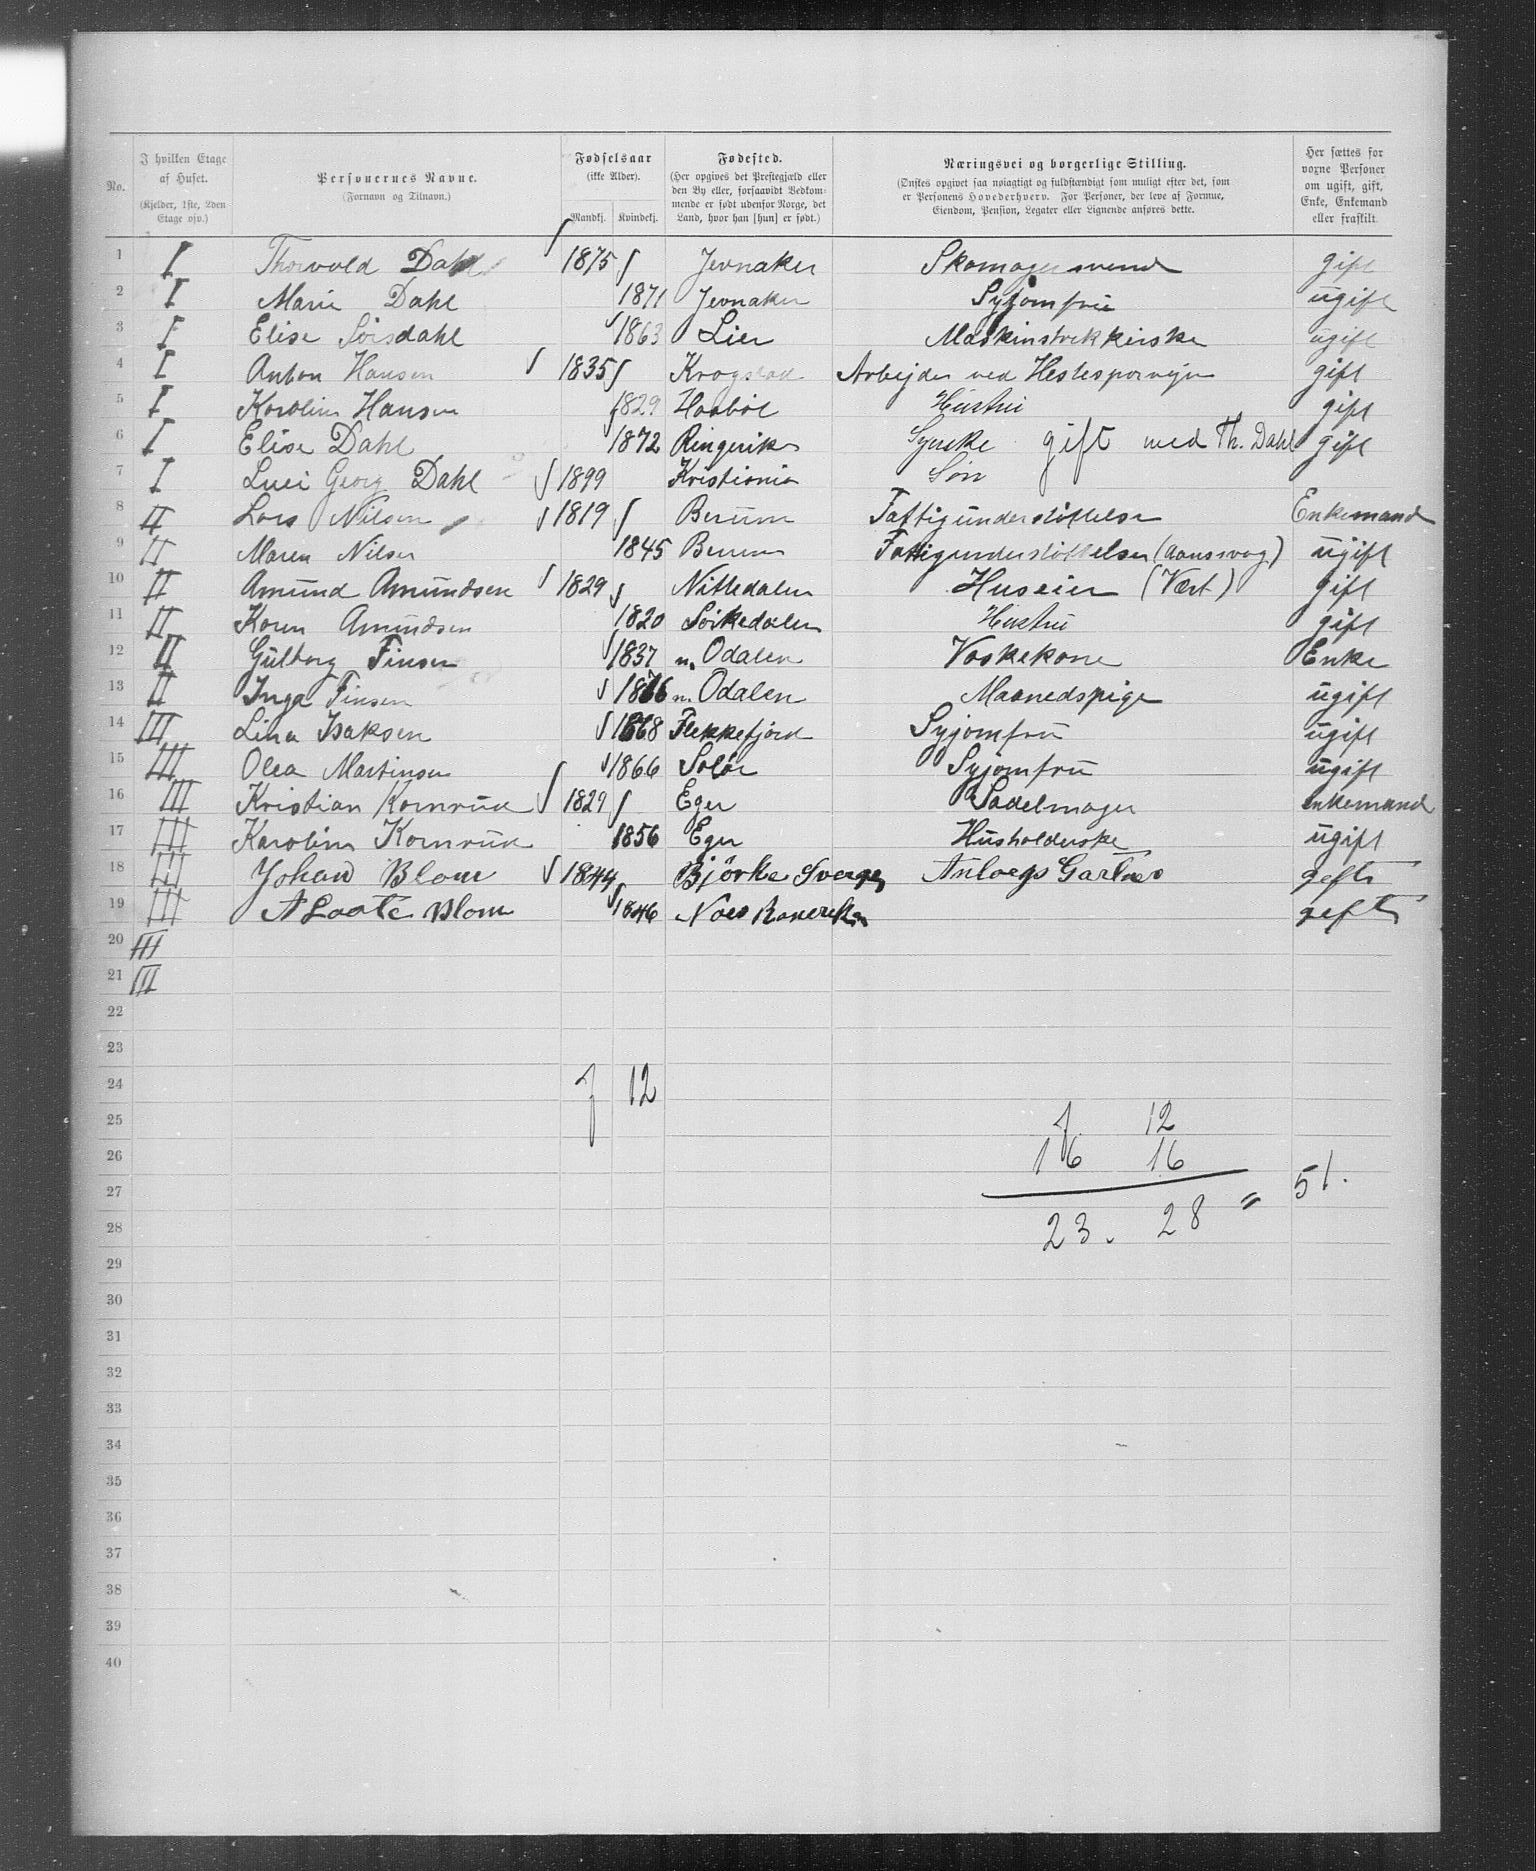 No.
I hvilken Etage af Huset. (Kjelder, 1ste, 2den Etage osv.)
Personernes Navne. (Fornavn og Tilnavn.)
Fødselsaar (ikke Alder). Mandkj. Kvindekj.
Fødested. (Her opgives det Prestegjæld eller den By eller, forsaavidt Vedkommende er født udenfor Norge, det Land, hvor han [hun] er født.)
Næringsvei og borgerlige Stilling. (Ønstes opgivet saa nøiagtigt og fuldstændigt som muligt efter det, som er Personens Hovederhverv. For Personer, der leve af Formue, Eiendom, Pension, Legater eller Lignende anføres dette.
Her sættes for voxne Personer om ugift, gift, Enke, Enkemand eller fraskilt.
1 I Thorvald Dahl 1875 Jevnaker Skomagersvend gift
2 I Marie Dahl 1871 Jevnaker Syjomfru ugift
3 I Elise Sørsdahl 1863 Lier Maskinstrikkerske ugift
4 I Anton Hansen 1835 Krogstad Arbejder ved Hestesporvejen gift
5 I Karoline Hansen 1829 Haabøl Hustru gift
6 I Elise Dahl 1872 Ringerike Syerske gift med Th. Dahl gift
7 I Georg Dahl 1899 Kristiania Søn
8 II Lars Nilsen 1819 Berum Fattigunderstøttelse Enkemand
9 II Maren Nilsen 1845 Berum Fattigunderstøttelse (aanssvag) ugift
10 II Amund Amundsen 1829 Nittedalen Huseier (Vært) gift
11 II Karen Amundsen 1820 Sørkedalen Hustru gift
12 II Gulborg Finsen 1837 n. Odalen Vaskekone Enke
13 II Inga Finsen 1876 n. Odalen Maanedspige ugift
14 III Lina Isaksen 1868 Flekkefjord Syjomfru ugift
15 III Olea Martinsen 1866 Solør Syjomfru ugift
16 III Kristian Komrud 1829 Eger Sadelmager enkemand
17 III Karoline Komrud 1856 Eger Husholderske ugift
18 III Johan Blom 1844 Björke Sverge Anlægs Gartner geft
19 III Blom 1846 Næs Romerike geft
20 III
21 III
22
23
24 7 12
25 7 12
26 16 16
27 51.
28 23. 28 =
29
30
31
32
33
34
35
36
37
38
39
40